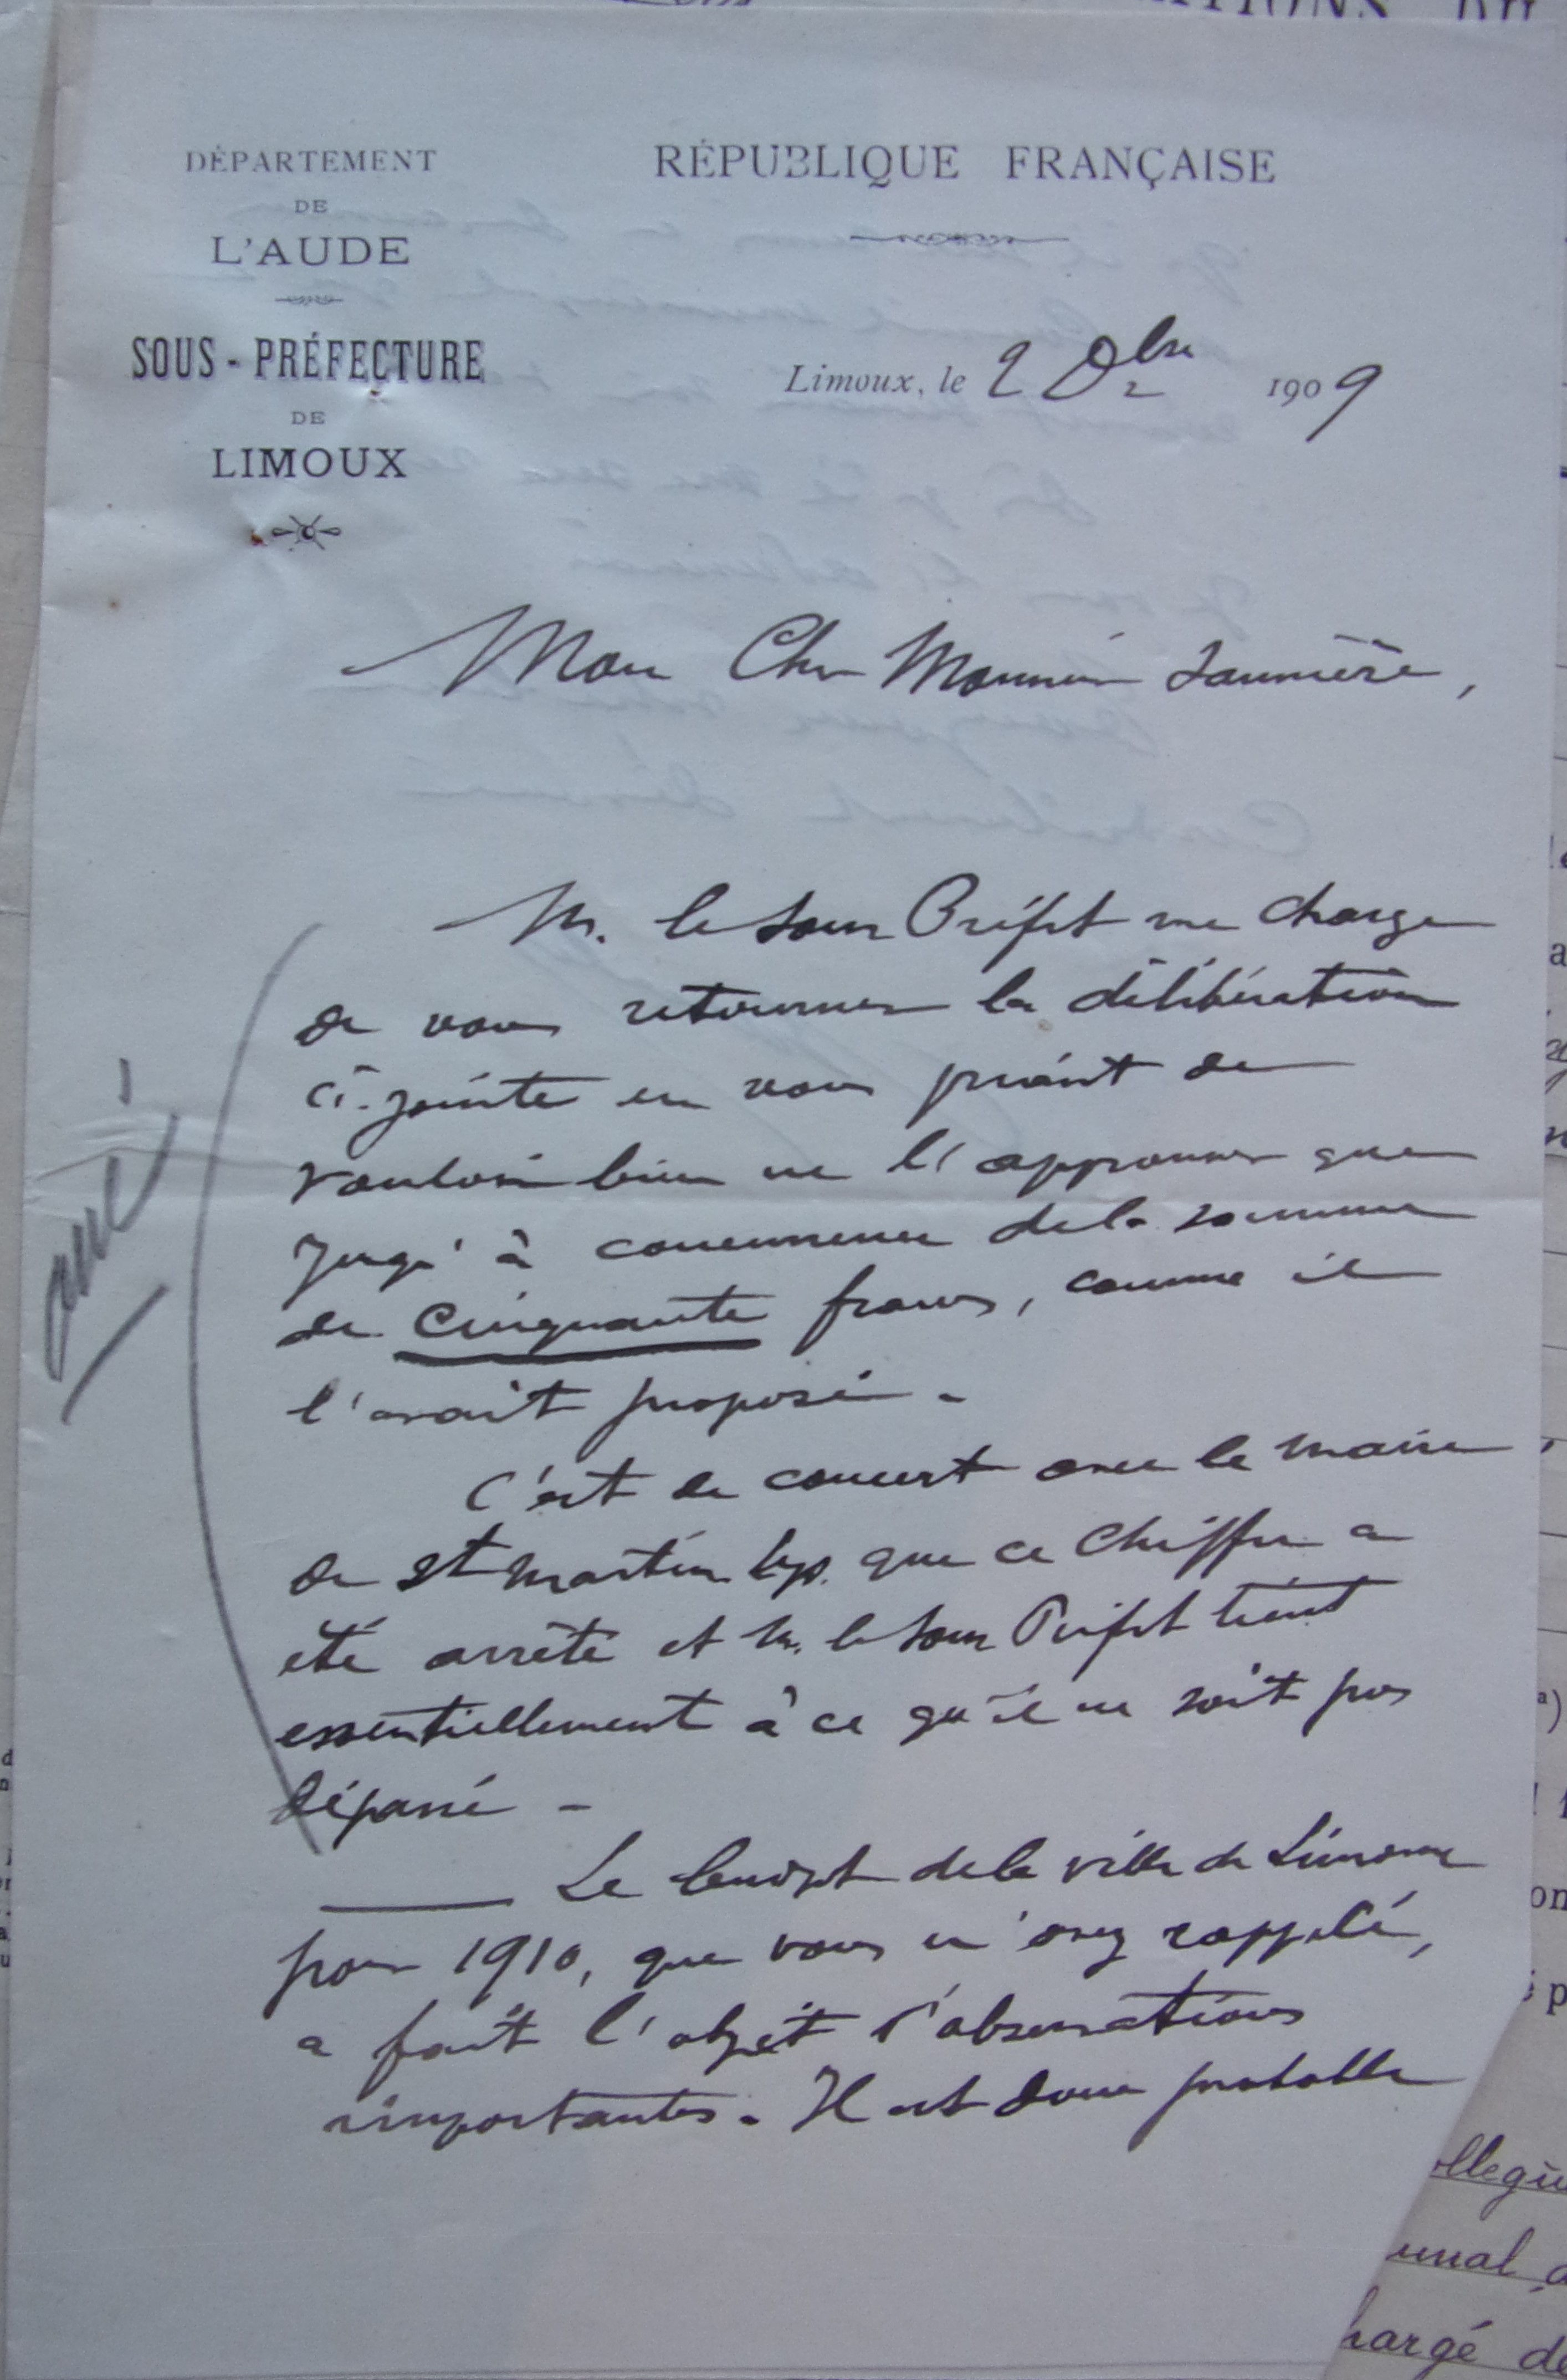 DÉPARTEMENT
DE
L'AUDE
SOUS-PRÉFECTURE
DE
LIMOUX
RÉPUBLIQUE FRANÇAISE
Limoux, le 2 Xbre 1909
Mon Cher Monsieur Saunière,
M. le Sous Préfet me charge
de vous retourner la délibération
ci-jointe en vous priant de
vouloir bien ne l'approuver que
jusqu'à concurrence de la somme
de Cinquante francs, comme il
l'avait proposé.
C'est de concert avec le maire
de St Martin Lys. que ce chiffre a
été arrêté et M. le Sous Préfet tient
essentiellement à ce qu'il ne soit pas
dépassé -
Le budget de la ville de Limoux
pour 1910, que vous m'avez rappelé,
a fait l'objet d'observations
importantes. Il est donc probable